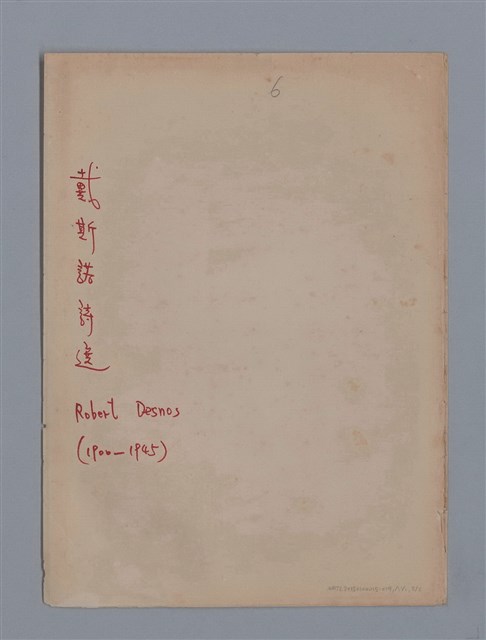 6
戴斯諾詩選
Robert Desnos
(1900—1945)